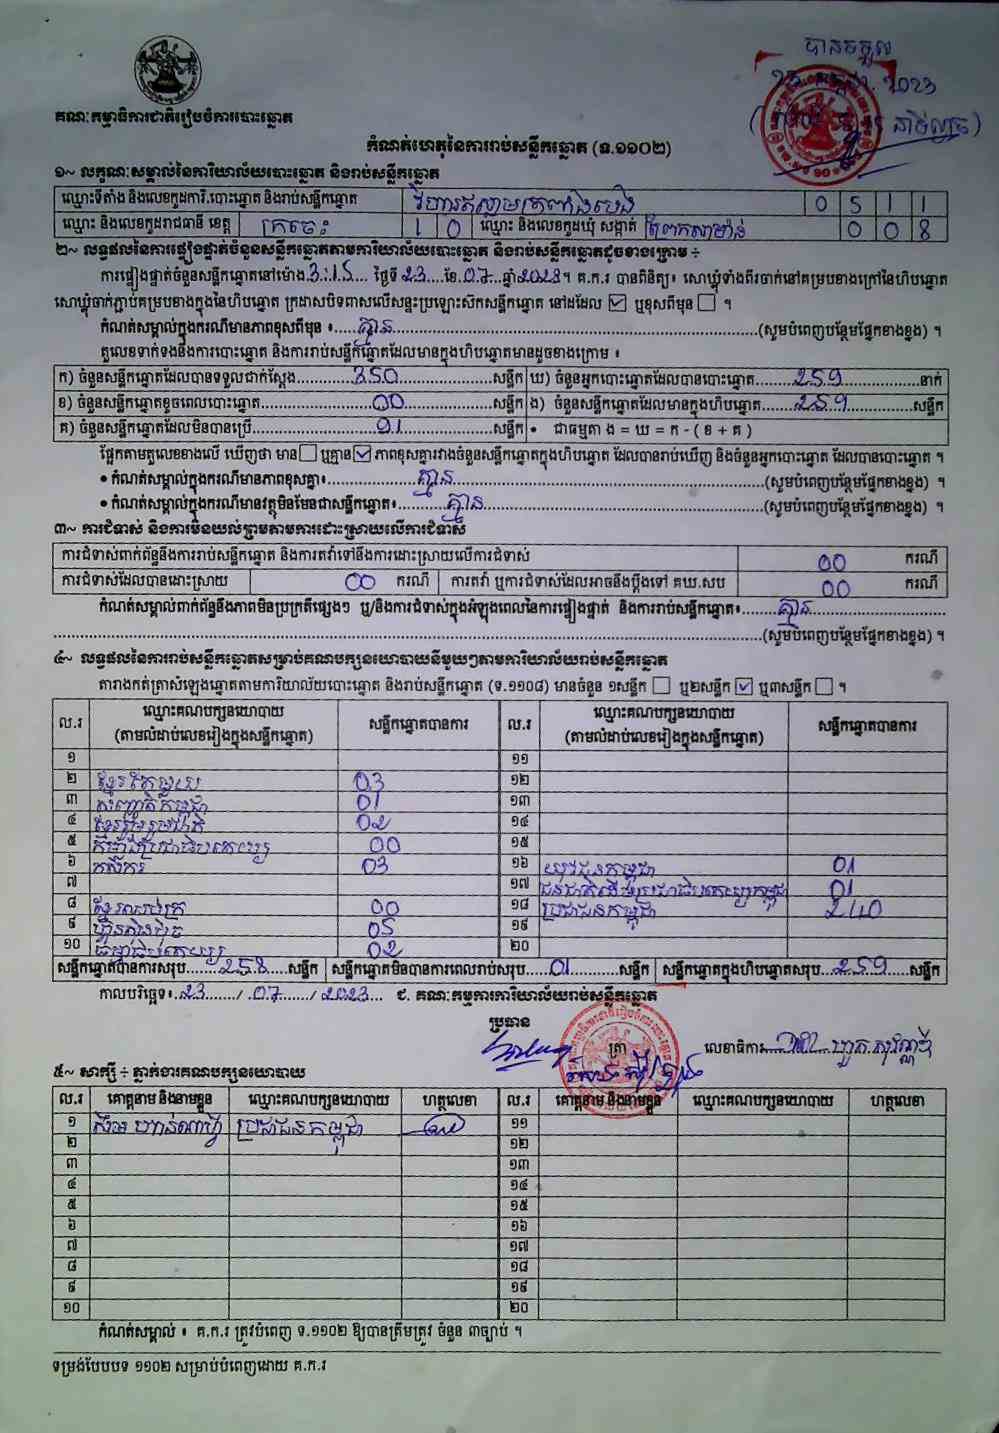 បានចម្លង
2023
គណៈកម្មាធិការជាតិរៀបចំការបោះឆ្នោត
កំណត់ហេតុនៃការរាប់សន្លឹកឆ្នោត (ទ.១១០២)
១~ លក្ខណៈសម្គាល់នៃការិយាល័យបោះឆ្នោត និងរាប់សន្លឹកឆ្នោត
ឈ្មោះទីតាំង និងលេខកូដការិ.បោះឆ្នោត និងរាប់សន្លឹកឆ្នោត 0 5 1 1
ឈ្មោះ និងលេខកូដរាជធានី ខេត្ត ក្រចេះ 1 0 ឈ្មោះ និងលេខកូដឃុំ សង្កាត់ 0 0 8
២~ លទ្ធផលនៃការផ្ទៀងផ្ទាត់ចំនួនសន្លឹកឆ្នោតតាមការិយាល័យបោះឆ្នោត និងរាប់សន្លឹកឆ្នោតដូចខាងក្រោម ÷
ការផ្ទៀងផ្ទាត់ចំនួនសន្លឹកឆ្នោតនៅម៉ោង 3:15 ថ្ងៃទី 23 ខែ 07 ឆ្នាំ 2023 ។ គ.ក.រ បានពិនិត្យ៖ សោឃ្លុំទាំងពីរចាក់នៅគម្របខាងក្រៅនៃហិបឆ្នោត
សោឃ្លុំចាក់ភ្ជាប់គម្របខាងក្នុងនៃហិបឆ្នោត ក្រដាសបិទពាសលើសន្ទះប្រឡោះស៊កសន្លឹកឆ្នោត នៅដដែល ☑ ឬខុសពីមុន ☐ ។
កំណត់សម្គាល់ក្នុងករណីមានភាពខុសពីមុន ៖ គ្មាន (សូមបំពេញបន្ថែមផ្នែកខាងខ្នង) ។
តួលេខទាក់ទងនឹងការបោះឆ្នោត និងការរាប់សន្លឹកឆ្នោតដែលមានក្នុងហិបឆ្នោតមានដូចខាងក្រោម ៖
ក) ចំនួនសន្លឹកឆ្នោតដែលបានទទួលជាក់ស្តែង 350 សន្លឹក ឃ) ចំនួនអ្នកបោះឆ្នោតដែលបានបោះឆ្នោត 259 នាក់
ខ) ចំនួនសន្លឹកឆ្នោតខូចពេលបោះឆ្នោត 00 សន្លឹក ង) ចំនួនសន្លឹកឆ្នោតដែលមានក្នុងហិបឆ្នោត 259 សន្លឹក
គ) ចំនួនសន្លឹកឆ្នោតដែលមិនបានប្រើ 91 សន្លឹក • ជាធម្មតា ង = ឃ = ក - ( ខ + គ )
ផ្អែកតាមតួលេខខាងលើ ឃើញថា មាន ☐ ឬគ្មាន ☑ ភាពខុសគ្នារវាងចំនួនសន្លឹកឆ្នោតក្នុងហិបឆ្នោត ដែលបានរាប់ឃើញ និងចំនួនអ្នកបោះឆ្នោត ដែលបានបោះឆ្នោត ។
• កំណត់សម្គាល់ក្នុងករណីមានភាពខុសគ្នា៖ គ្មាន (សូមបំពេញបន្ថែមផ្នែកខាងខ្នង) ។
• កំណត់សម្គាល់ក្នុងករណីមានវត្ថុមិនមែនជាសន្លឹកឆ្នោត៖ គ្មាន (សូមបំពេញបន្ថែមផ្នែកខាងខ្នង) ។
៣~ ការជំទាស់ និងការមិនយល់ព្រមតាមការដោះស្រាយលើការជំទាស់
ការជំទាស់ពាក់ព័ន្ធនឹងការរាប់សន្លឹកឆ្នោត និងការតវ៉ាទៅនឹងការដោះស្រាយលើការជំទាស់ 00 ករណី
ការជំទាស់ដែលបានដោះស្រាយ 00 ករណី ការតវ៉ា ឬការជំទាស់ដែលអាចនឹងប្តឹងទៅ គឃ.សប 00 ករណី
កំណត់សម្គាល់ពាក់ព័ន្ធនឹងភាពមិនប្រក្រតីផ្សេងៗ ឬ/និងការជំទាស់ក្នុងអំឡុងពេលនៃការផ្ទៀងផ្ទាត់ និងការរាប់សន្លឹកឆ្នោត៖ គ្មាន
(សូមបំពេញបន្ថែមផ្នែកខាងខ្នង) ។
៤~ លទ្ធផលនៃការរាប់សន្លឹកឆ្នោតសម្រាប់គណបក្សនយោបាយនីមួយៗតាមការិយាល័យរាប់សន្លឹកឆ្នោត
តារាងកត់ត្រាសំឡេងឆ្នោតតាមការិយាល័យបោះឆ្នោត និងរាប់សន្លឹកឆ្នោត (ទ.១១០៨) មានចំនួន ១សន្លឹក ☐ ឬ២សន្លឹក ☑ ឬ៣សន្លឹក ☐ ។
ល.រ ឈ្មោះគណបក្សនយោបាយ (តាមលំដាប់លេខរៀងក្នុងសន្លឹកឆ្នោត) សន្លឹកឆ្នោតបានការ ល.រ ឈ្មោះគណបក្សនយោបាយ (តាមលំដាប់លេខរៀងក្នុងសន្លឹកឆ្នោត) សន្លឹកឆ្នោតបានការ
១ ១១
២ ខ្មែរតែមួយ 03 ១២
៣ សញ្ជាតិកម្ពុជា 01 ១៣
៤ ខ្មែររួបរួមជាតិ 02 ១៤
៥ 00 ១៥
៦ កសិករ 03 ១៦ យុវជនកម្ពុជា 01
៧ ១៧ ជនជាតិដើមប្រជាធិបតេយ្យកម្ពុជា 01
៨ 00 ១៨ ប្រជាជនកម្ពុជា 240
៩ ហ៊្វុនស៊ិនប៉ិច 05 ១៩
១០ 02 ២០
សន្លឹកឆ្នោតបានការសរុប 258 សន្លឹក សន្លឹកឆ្នោតមិនបានការពេលរាប់សរុប 01 សន្លឹក សន្លឹកឆ្នោតក្នុងហិបឆ្នោតសរុប 259 សន្លឹក
កាលបរិច្ឆេទ៖ 23 / 07 / 2023 ជ. គណៈកម្មការការិយាល័យរាប់សន្លឹកឆ្នោត
ប្រធាន ត្រា លេខាធិការ
៥~ សាក្សី ÷ ភ្នាក់ងារគណបក្សនយោបាយ
ល.រ គោត្តនាម និងនាមខ្លួន ឈ្មោះគណបក្សនយោបាយ ហត្ថលេខា ល.រ គោត្តនាម និងនាមខ្លួន ឈ្មោះគណបក្សនយោបាយ ហត្ថលេខា
១ ប្រជាជនកម្ពុជា ១១
២ ១២
៣ ១៣
៤ ១៤
៥ ១៥
៦ ១៦
៧ ១៧
៨ ១៨
៩ ១៩
១០ ២០
កំណត់សម្គាល់ ៖ គ.ក.រ ត្រូវបំពេញ ទ.១១០២ ឱ្យបានត្រឹមត្រូវ ចំនួន ៣ច្បាប់ ។
ទម្រង់បែបបទ ១១០២ សម្រាប់បំពេញដោយ គ.ក.រ